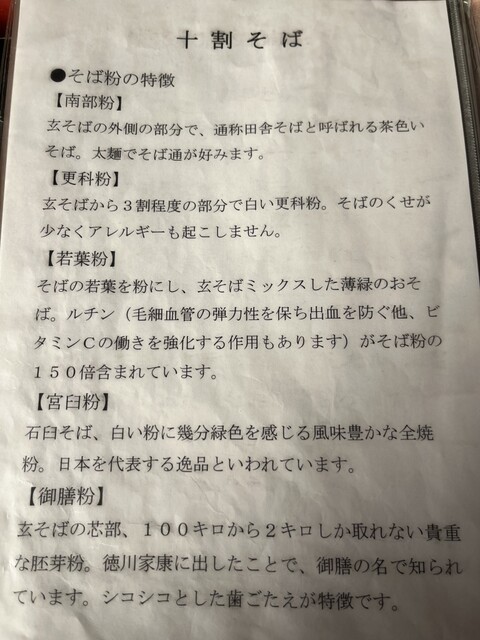 十割そば
●そば粉の特徴
【南部粉】
玄そばの外側の部分で、通称田舎そばと呼ばれる茶色い
そば。太麺でそば通が好みます。
【更科粉】
玄そばから３割程度の部分で白い更科粉。そばのくせが
少なくアレルギーも起こしません。
【若葉粉】
そばの若葉を粉にし、玄そばミックスした薄緑のおそ
ば。ルチン（毛細血管の弾力性を保ち出血を防ぐ他、ビ
タミンＣの働きを強化する作用もあります）がそば粉の
１５０倍含まれています。
【宮臼粉】
石臼そば、白い粉に幾分緑色を感じる風味豊かな全焼
粉。日本を代表する逸品といわれています。
【御膳粉】
玄そばの芯部、１００キロから２キロしか取れない貴重
な胚芽粉。徳川家康に出したことで、御膳の名で知られ
ています。シコシコとした歯ごたえが特徴です。